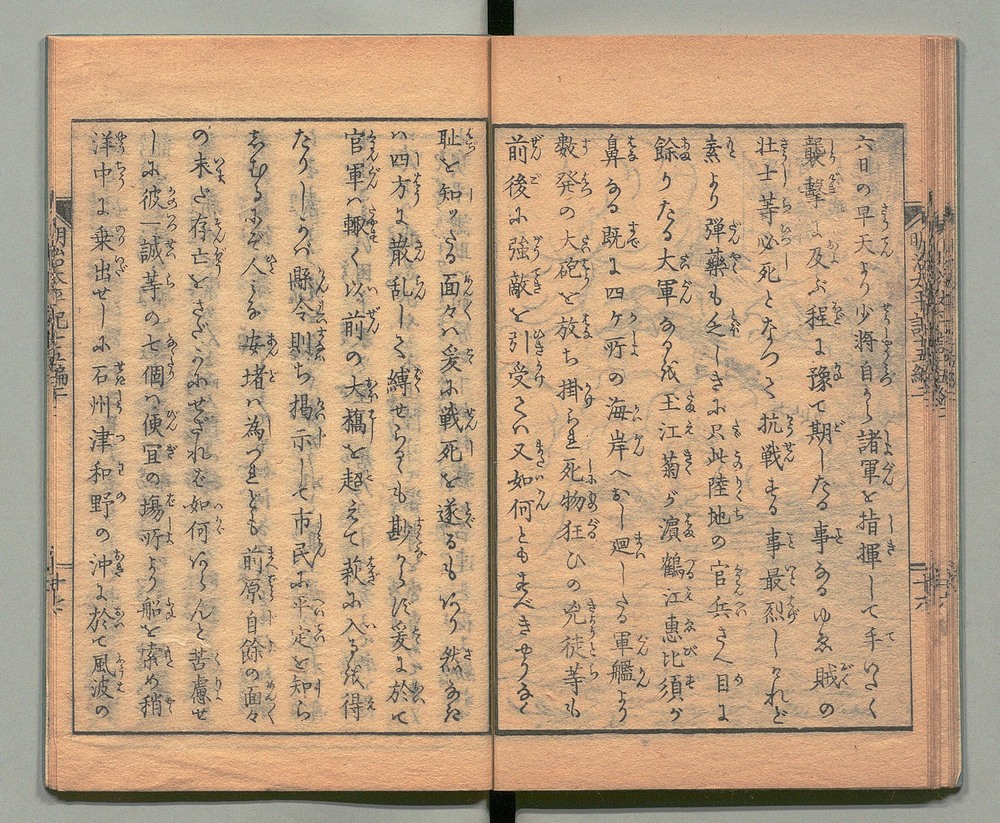 六日の早天より少将自から諸軍を指揮して手いたく
襲撃に及ぶ程に豫て期したる事なるゆゑ賊の
壮士等必死となつて抗戦する事最烈しけれど
素より弾藥も乏しきに只此陸地の官兵さへ目に
餘りたる大軍なるを玉江菊が濵鶴江惠比須が
鼻なる既に四ケ所の海岸へおし廻したる軍艦より
數発の大砲を放ち掛られ死物狂ひの兇徒等も
前後に強敵を引受ては又如何ともすべきやうなく
耻を知ツたる面々は爰に戦死を遂るもあり然なきは
四方に散乱して縛せらるゝも尠からず爰に於て
官軍は輙く以前の大橋を超えて萩に入るを得
たりしかバ縣令則ち掲示して市民に平定を知ら
しむるにぞ人みな安堵は為つれども前原自餘の面々
の未だ存亡をさだかにせざれば如何あらんと苦慮せ
しに彼一誠等の七個は便宜の塲所より船を索め稍
洋中に乗出せしに石州津和野の沖に於て風波の
明治太平記十五編二